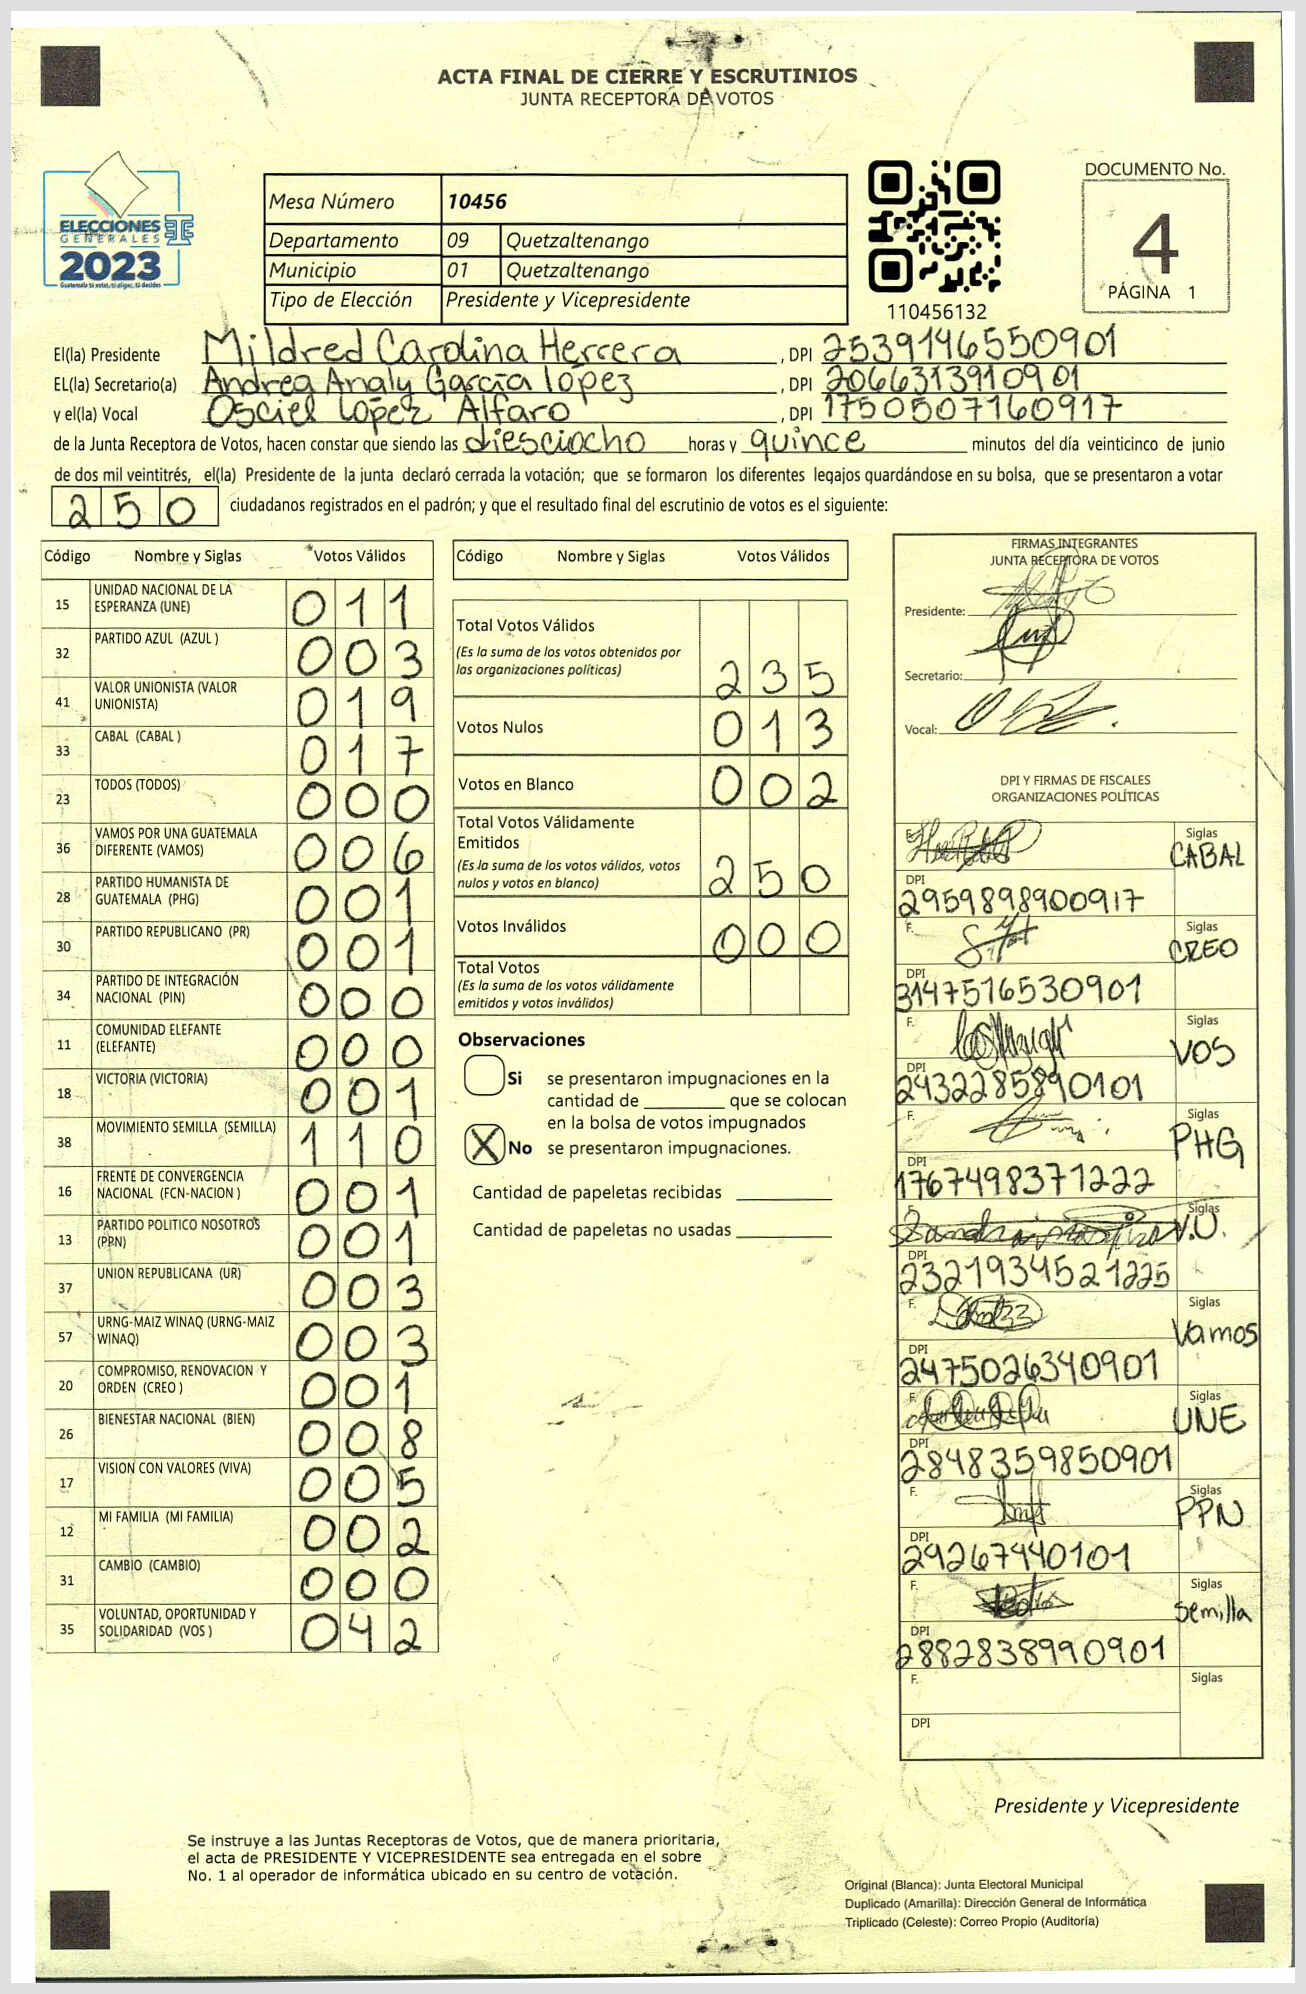 ACTA FINAL DE CIERRE Y ESCRUTINIOS
JUNTA RECEPTORA DE VOTOS
ELECCIONES
GENERALES
2023
Guatemala tú votas, tú eliges, tú decides
Mesa Número 10456
Departamento 09 Quetzaltenango
Municipio 01 Quetzaltenango
Tipo de Elección Presidente y Vicepresidente
110456132
DOCUMENTO No.
4
PÁGINA 1
El(la) Presidente Mildred Carolina Herrera , DPI 2539146550901
EL(la) Secretario(a) Andrea Analy García lópez , DPI 2066313910901
y el(la) Vocal Osciel lópez Alfaro , DPI 1750507160917
de la Junta Receptora de Votos, hacen constar que siendo las diesciocho horas y quince minutos del día veinticinco de junio
de dos mil veintitrés, el(la) Presidente de la junta declaró cerrada la votación; que se formaron los diferentes legajos quardándose en su bolsa, que se presentaron a votar
250 ciudadanos registrados en el padrón; y que el resultado final del escrutinio de votos es el siguiente:
Código Nombre y Siglas Votos Válidos
15 UNIDAD NACIONAL DE LA ESPERANZA (UNE) 011
32 PARTIDO AZUL (AZUL ) 003
41 VALOR UNIONISTA (VALOR UNIONISTA) 019
33 CABAL (CABAL ) 017
23 TODOS (TODOS) 000
36 VAMOS POR UNA GUATEMALA DIFERENTE (VAMOS) 006
28 PARTIDO HUMANISTA DE GUATEMALA (PHG) 001
30 PARTIDO REPUBLICANO (PR) 001
34 PARTIDO DE INTEGRACIÓN NACIONAL (PIN) 000
11 COMUNIDAD ELEFANTE (ELEFANTE) 000
18 VICTORIA (VICTORIA) 001
38 MOVIMIENTO SEMILLA (SEMILLA) 110
16 FRENTE DE CONVERGENCIA NACIONAL (FCN-NACION ) 001
13 PARTIDO POLITICO NOSOTROS (PPN) 001
37 UNION REPUBLICANA (UR) 003
57 URNG-MAIZ WINAQ (URNG-MAIZ WINAQ) 003
20 COMPROMISO, RENOVACION Y ORDEN (CREO ) 001
26 BIENESTAR NACIONAL (BIEN) 008
17 VISION CON VALORES (VIVA) 005
12 MI FAMILIA (MI FAMILIA) 002
31 CAMBIO (CAMBIO) 000
35 VOLUNTAD, OPORTUNIDAD Y SOLIDARIDAD (VOS ) 042
Código Nombre y Siglas Votos Válidos
Total Votos Válidos
(Es la suma de los votos obtenidos por
las organizaciones políticas) 235
Votos Nulos 013
Votos en Blanco 002
Total Votos Válidamente
Emitidos
(Es la suma de los votos válidos, votos
nulos y votos en blanco) 250
Votos Inválidos 000
Total Votos
(Es la suma de los votos válidamente
emitidos y votos inválidos)
Observaciones
Si se presentaron impugnaciones en la
cantidad de ________ que se colocan
en la bolsa de votos impugnados
X No se presentaron impugnaciones.
Cantidad de papeletas recibidas
Cantidad de papeletas no usadas
FIRMAS INTEGRANTES
JUNTA RECEPTORA DE VOTOS
Presidente:
Secretario:
Vocal:
DPI Y FIRMAS DE FISCALES
ORGANIZACIONES POLÍTICAS
F. Siglas CABAL
DPI 2959898900917
F. Siglas CREO
DPI 3147516530901
F. Siglas VOS
DPI 2432285890101
F. Siglas PHG
DPI 1767498371222
Siglas V.U.
DPI 2321934521225
F. Siglas Vamos
DPI 2475026340901
F. Siglas UNE
DPI 2848359850901
F. Siglas PPN
DPI 29267440101
F. Siglas semilla
DPI 2882838990901
F. Siglas
DPI
Presidente y Vicepresidente
Se instruye a las Juntas Receptoras de Votos, que de manera prioritaria,
el acta de PRESIDENTE Y VICEPRESIDENTE sea entregada en el sobre
No. 1 al operador de informática ubicado en su centro de votación.
Original (Blanca): Junta Electoral Municipal
Duplicado (Amarilla): Dirección General de Informática
Triplicado (Celeste): Correo Propio (Auditoría)